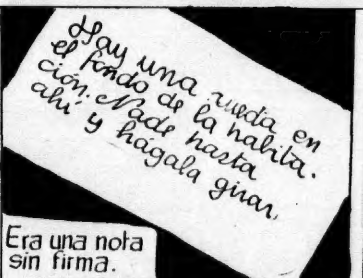 Hay una rueda en
el fondo de la habita-
ción. Nade hasta
ahí y hágala girar.
Era una nota
sin firma.